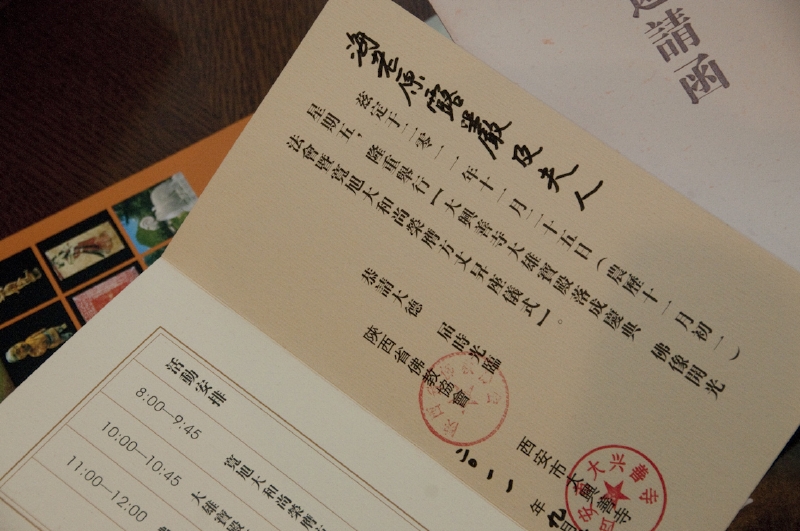 請函
海老原露巖及夫人
茲定于二零一一年十一月二十五日（農歷十一月初一）
星期五，隆重舉行【大興善寺大雄寶殿落成慶典 佛像開光
法會暨寬旭大和尚榮膺方丈昇座儀式】。
恭請大德 屆時光臨
陝西省佛教協會
西安市大興善寺
二〇一一年九月
活動安排
8:00—9:45
寬旭大和尚榮膺
10:00—10:45
大雄寶殿
11:00—12:00